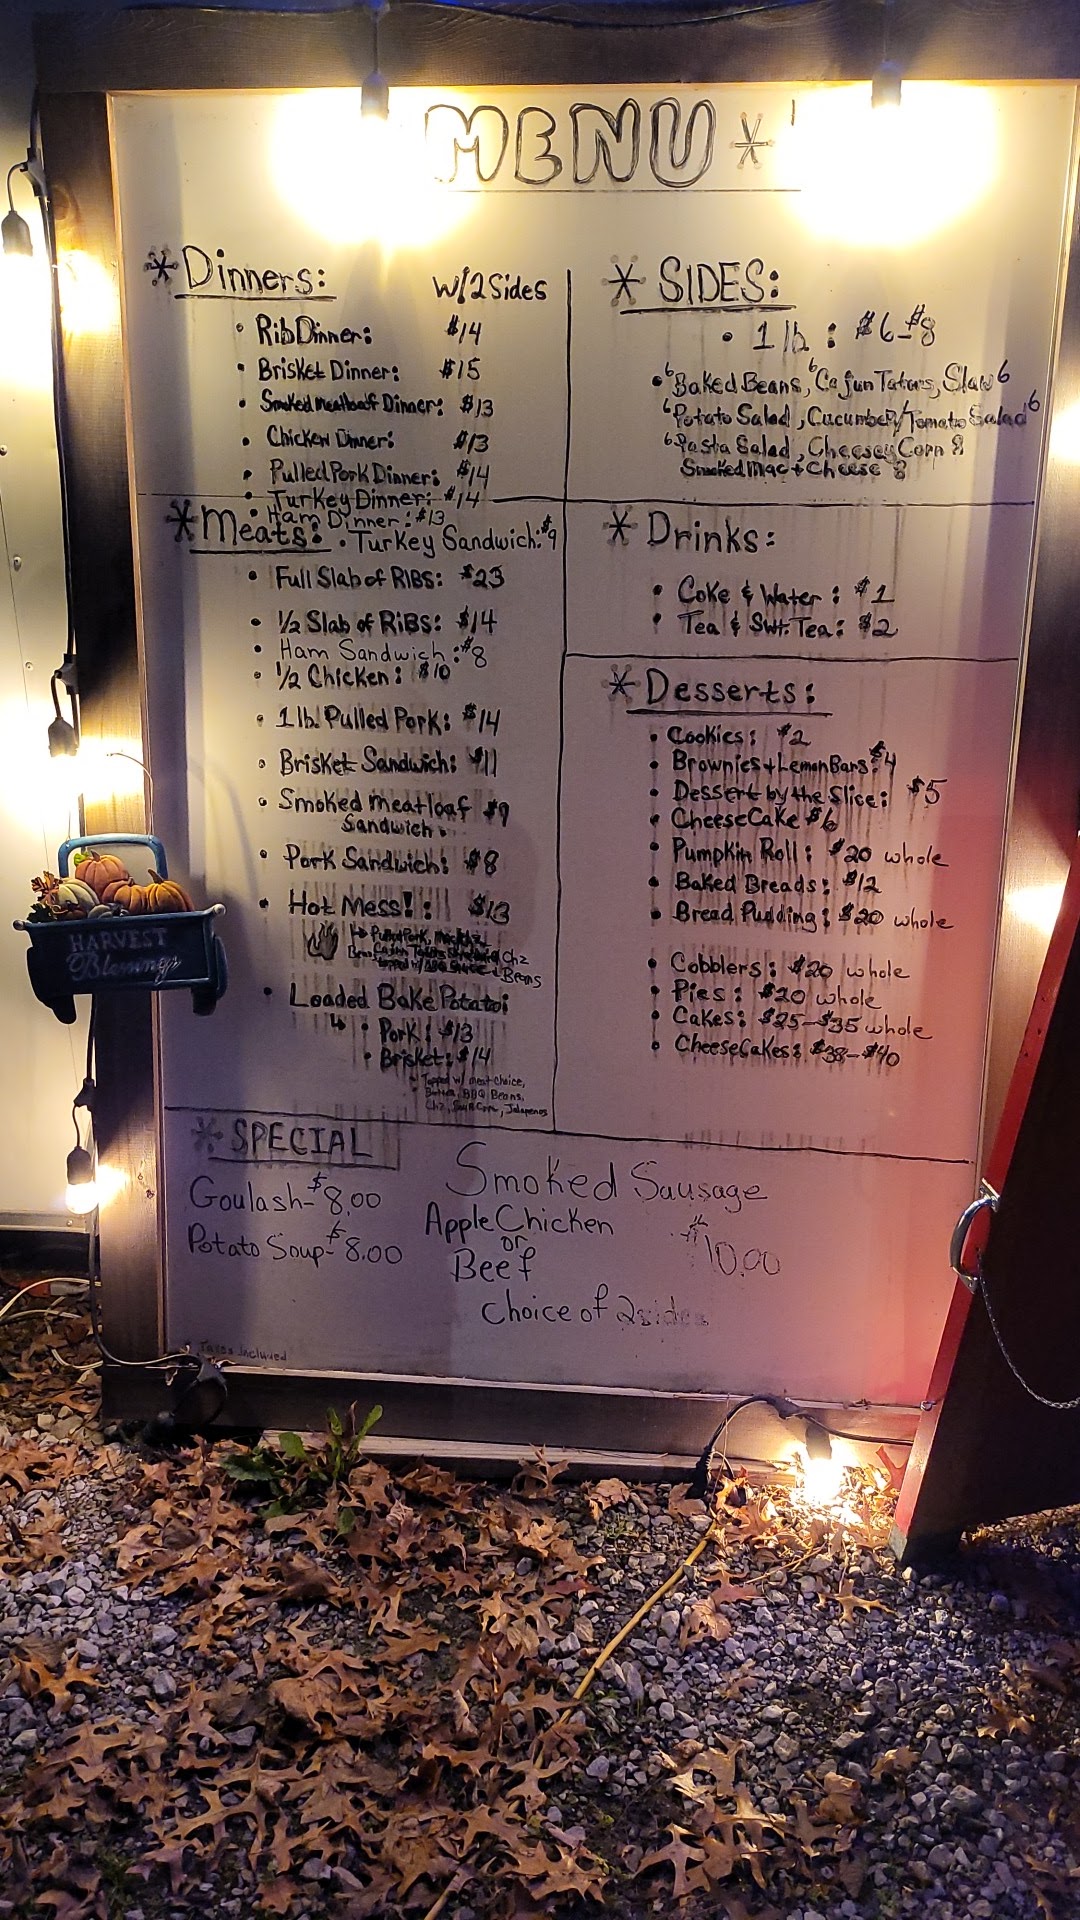 MENU
* Dinners: W/2 Sides
• Rib Dinner: $14
• Brisket Dinner: $15
• Smoked meatloaf Dinner: $13
• Chicken Dinner: $13
• Pulled Pork Dinner: $14
• Turkey Dinner: $14
• Ham Dinner: $13
* Meats: • Turkey Sandwich: $9
• Full Slab of RIBS: $23
• 1/2 Slab of RIBS: $14
• Ham Sandwich: $8
• 1/2 Chicken: $10
• 1 lb. Pulled Pork: $14
• Brisket Sandwich: $11
• Smoked meatloaf $9
Sandwich.
• Pork Sandwich: $8
• Hot Mess!: $13
Pulled Pork,
Chz
Beans
• Loaded Bake Potato:
• Pork: $13
• Brisket: $14
• Topped w/ meat choice,
Butter, BBQ Beans,
Chz, Sour Crm, Jalapenos
* SIDES:
• 1 lb. : $6-$8
• 6 Baked Beans, 6 Cajun Taters, Slaw 6
6 Potato Salad, Cucumber/Tomato Salad 6
6 Pasta Salad, Cheesey Corn 8
Smoked Mac + Cheese 8
* Drinks:
• Coke & Water: $1
• Tea & Swt. Tea: $2
* Desserts:
• Cookies: $2
• Brownies + Lemon Bars: $4
• Dessert by the Slice: $5
• CheeseCake $6
• Pumpkin Roll: $20 whole
• Baked Breads: $12
• Bread Pudding: $20 whole
• Cobblers: $20 whole
• Pies: $20 whole
• Cakes: $25-$35 whole
• CheeseCakes: $38-$40
* SPECIAL
Goulash-$8.00
Potato Soup-$8.00
Smoked Sausage
Apple Chicken
or
Beef
$10.00
choice of 2 sides
included
HARVEST
Blessings